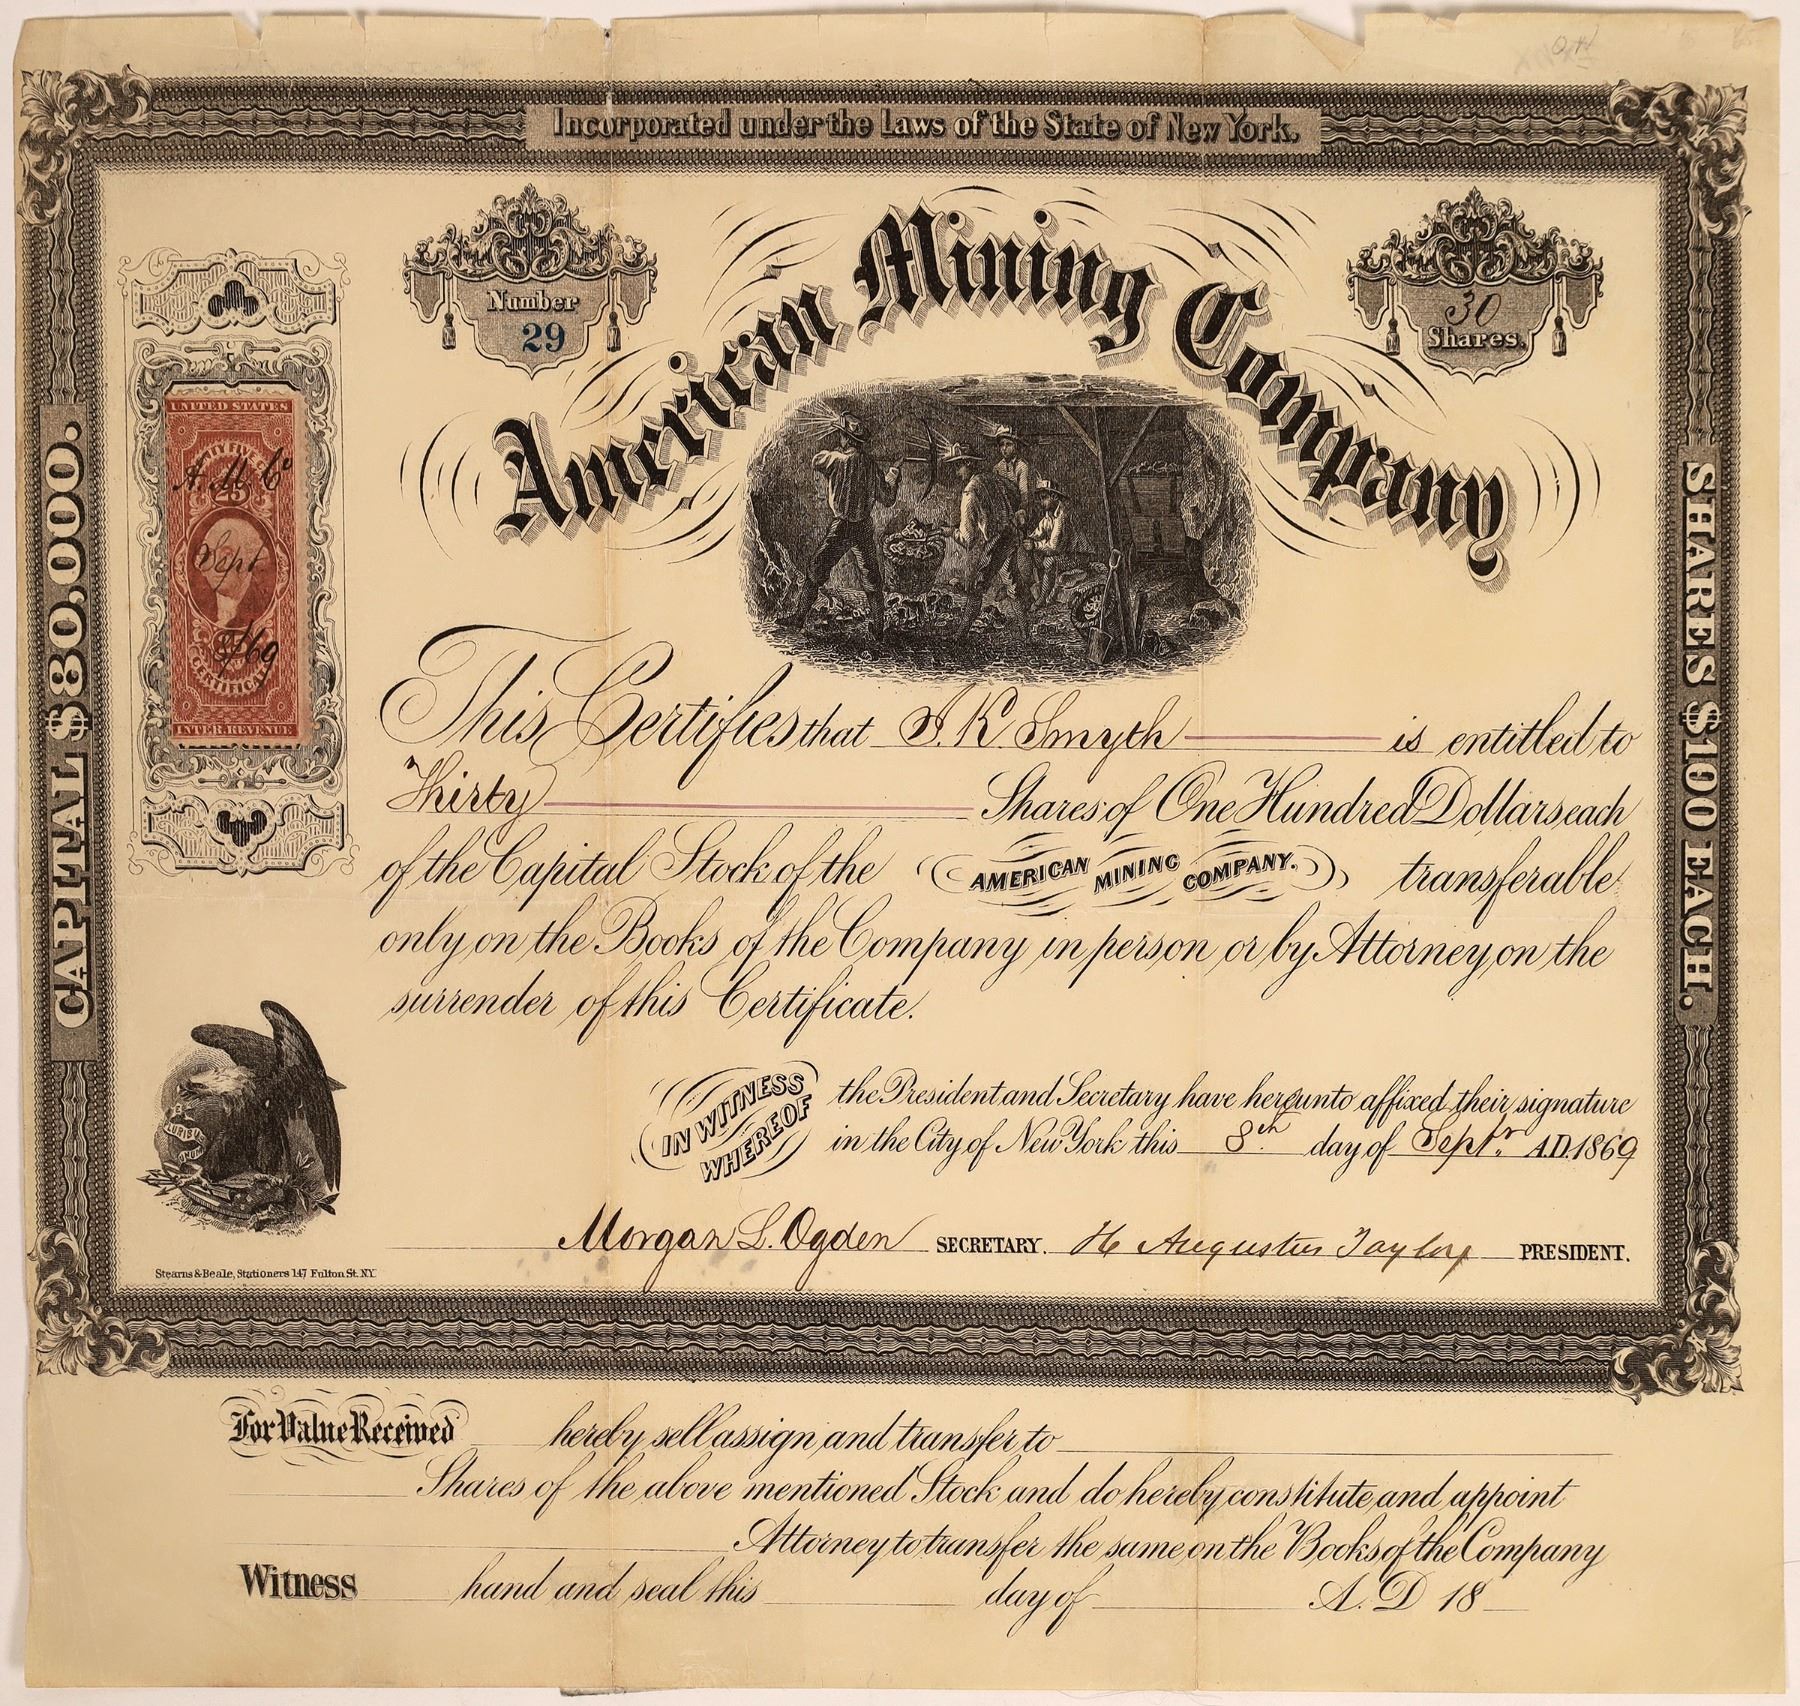 Incorporated under the Laws of the State of New York.
Number
29
30
Shares.
American Mining Company
CAPITAL $80,000.
SHARES $100 EACH.
5
UNITED STATES
25
A. M. Co
Sept
8/69
CERTIFICATE
INTER. REVENUE
This Certifies that S. K. Smyth is entitled to
Thirty Shares of One Hundred Dollars each
of the Capital Stock of the AMERICAN MINING COMPANY. transferable
only on the Books of the Company in person or by Attorney on the
surrender of this Certificate.
IN WITNESS WHEREOF the President and Secretary have hereunto affixed their signature
in the City of New York this 8th day of Septr A.D. 1869
E
PLURIBUS
UNUM
Morgan L. Ogden SECRETARY. H Augustus Taylor PRESIDENT.
Stearns & Beale, Stationers 147 Fulton St. NY
For Value Received hereby sell assign and transfer to
Shares of the above mentioned Stock and do hereby constitute and appoint
Attorney to transfer the same on the Books of the Company
Witness hand and seal this day of A. D 18